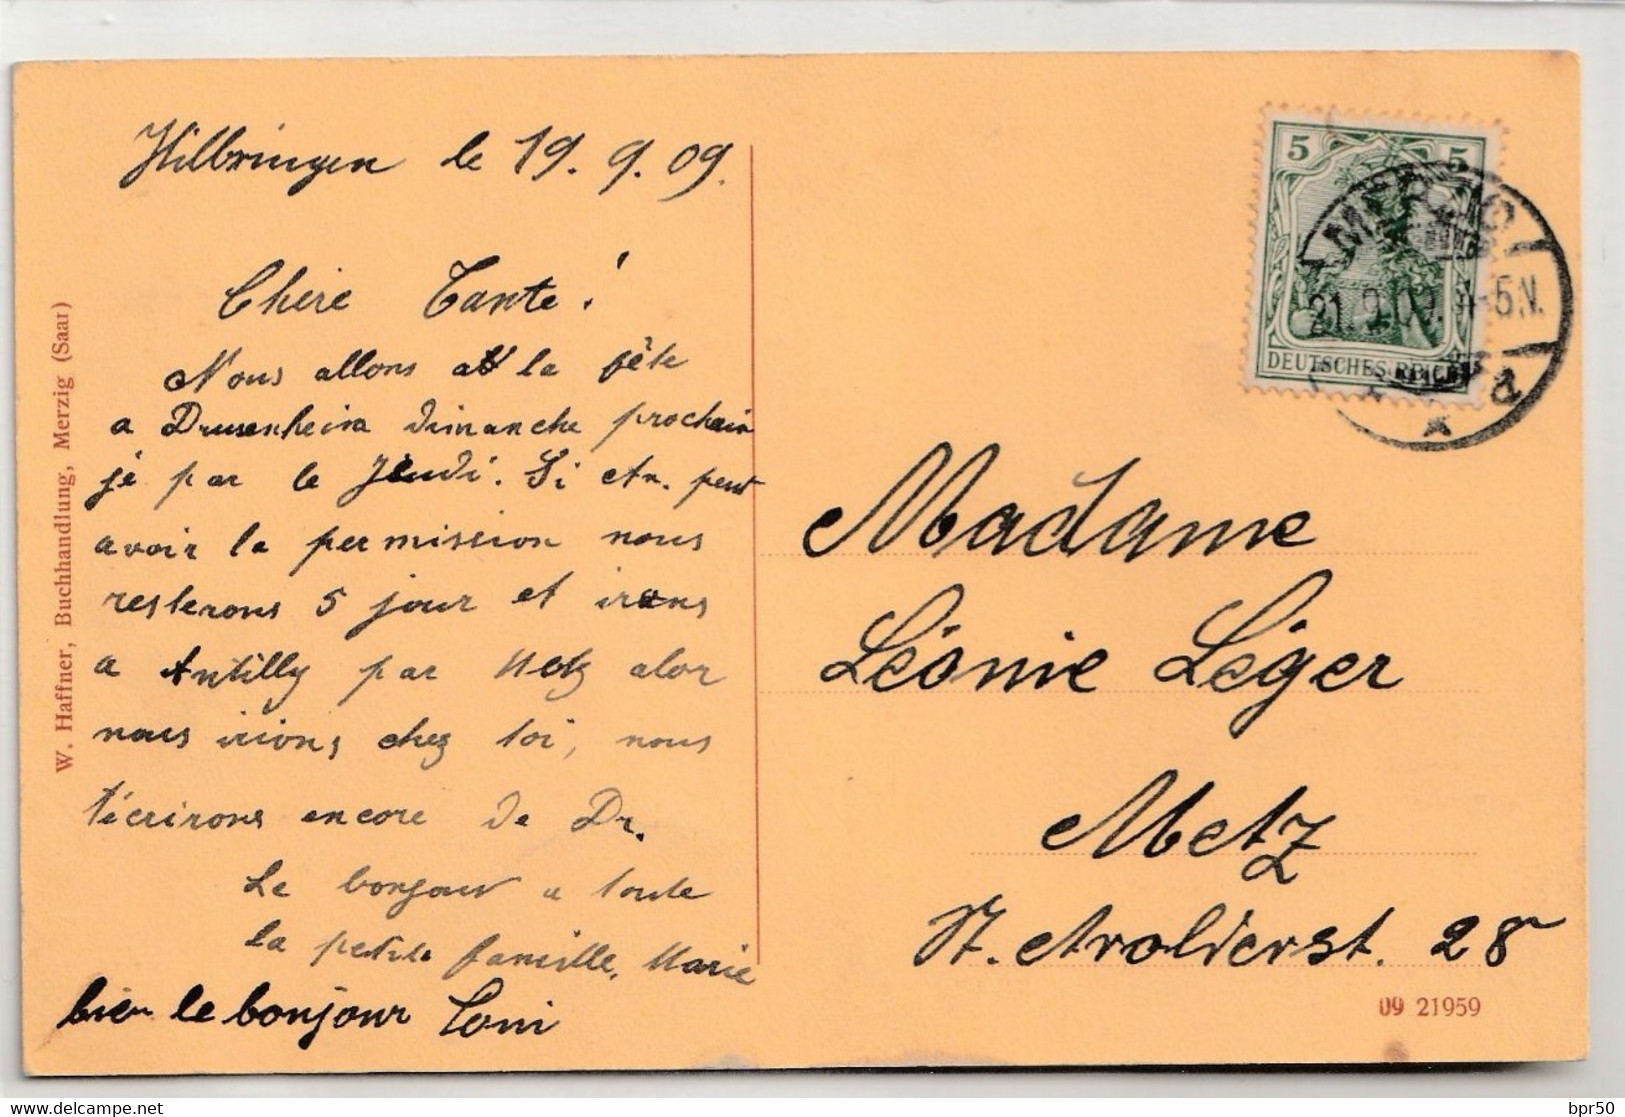 Hilbringen le 19. 9. 09.
Chère Tante!
Nous allons a la fête
a Drusenheim dimanche prochain
je par le Jeudi. Si Ar. peut
avoir la permission nous
resterons 5 jour et irons
a Antilly par Metz alor
nous irions chez toi, nous
t'écrirons encore de Dr.
Le bonjour a toute
la petite famille, Marie
bien le bonjour Toni
W. Haffner, Buchhandlung, Merzig (Saar)
5 5
DEUTSCHES REICH
MERZIG
21. 9. 09. 4-5 N.
Madame
Léonie Léger
Metz
St. Arnolderst. 28
09 21959
bpr50